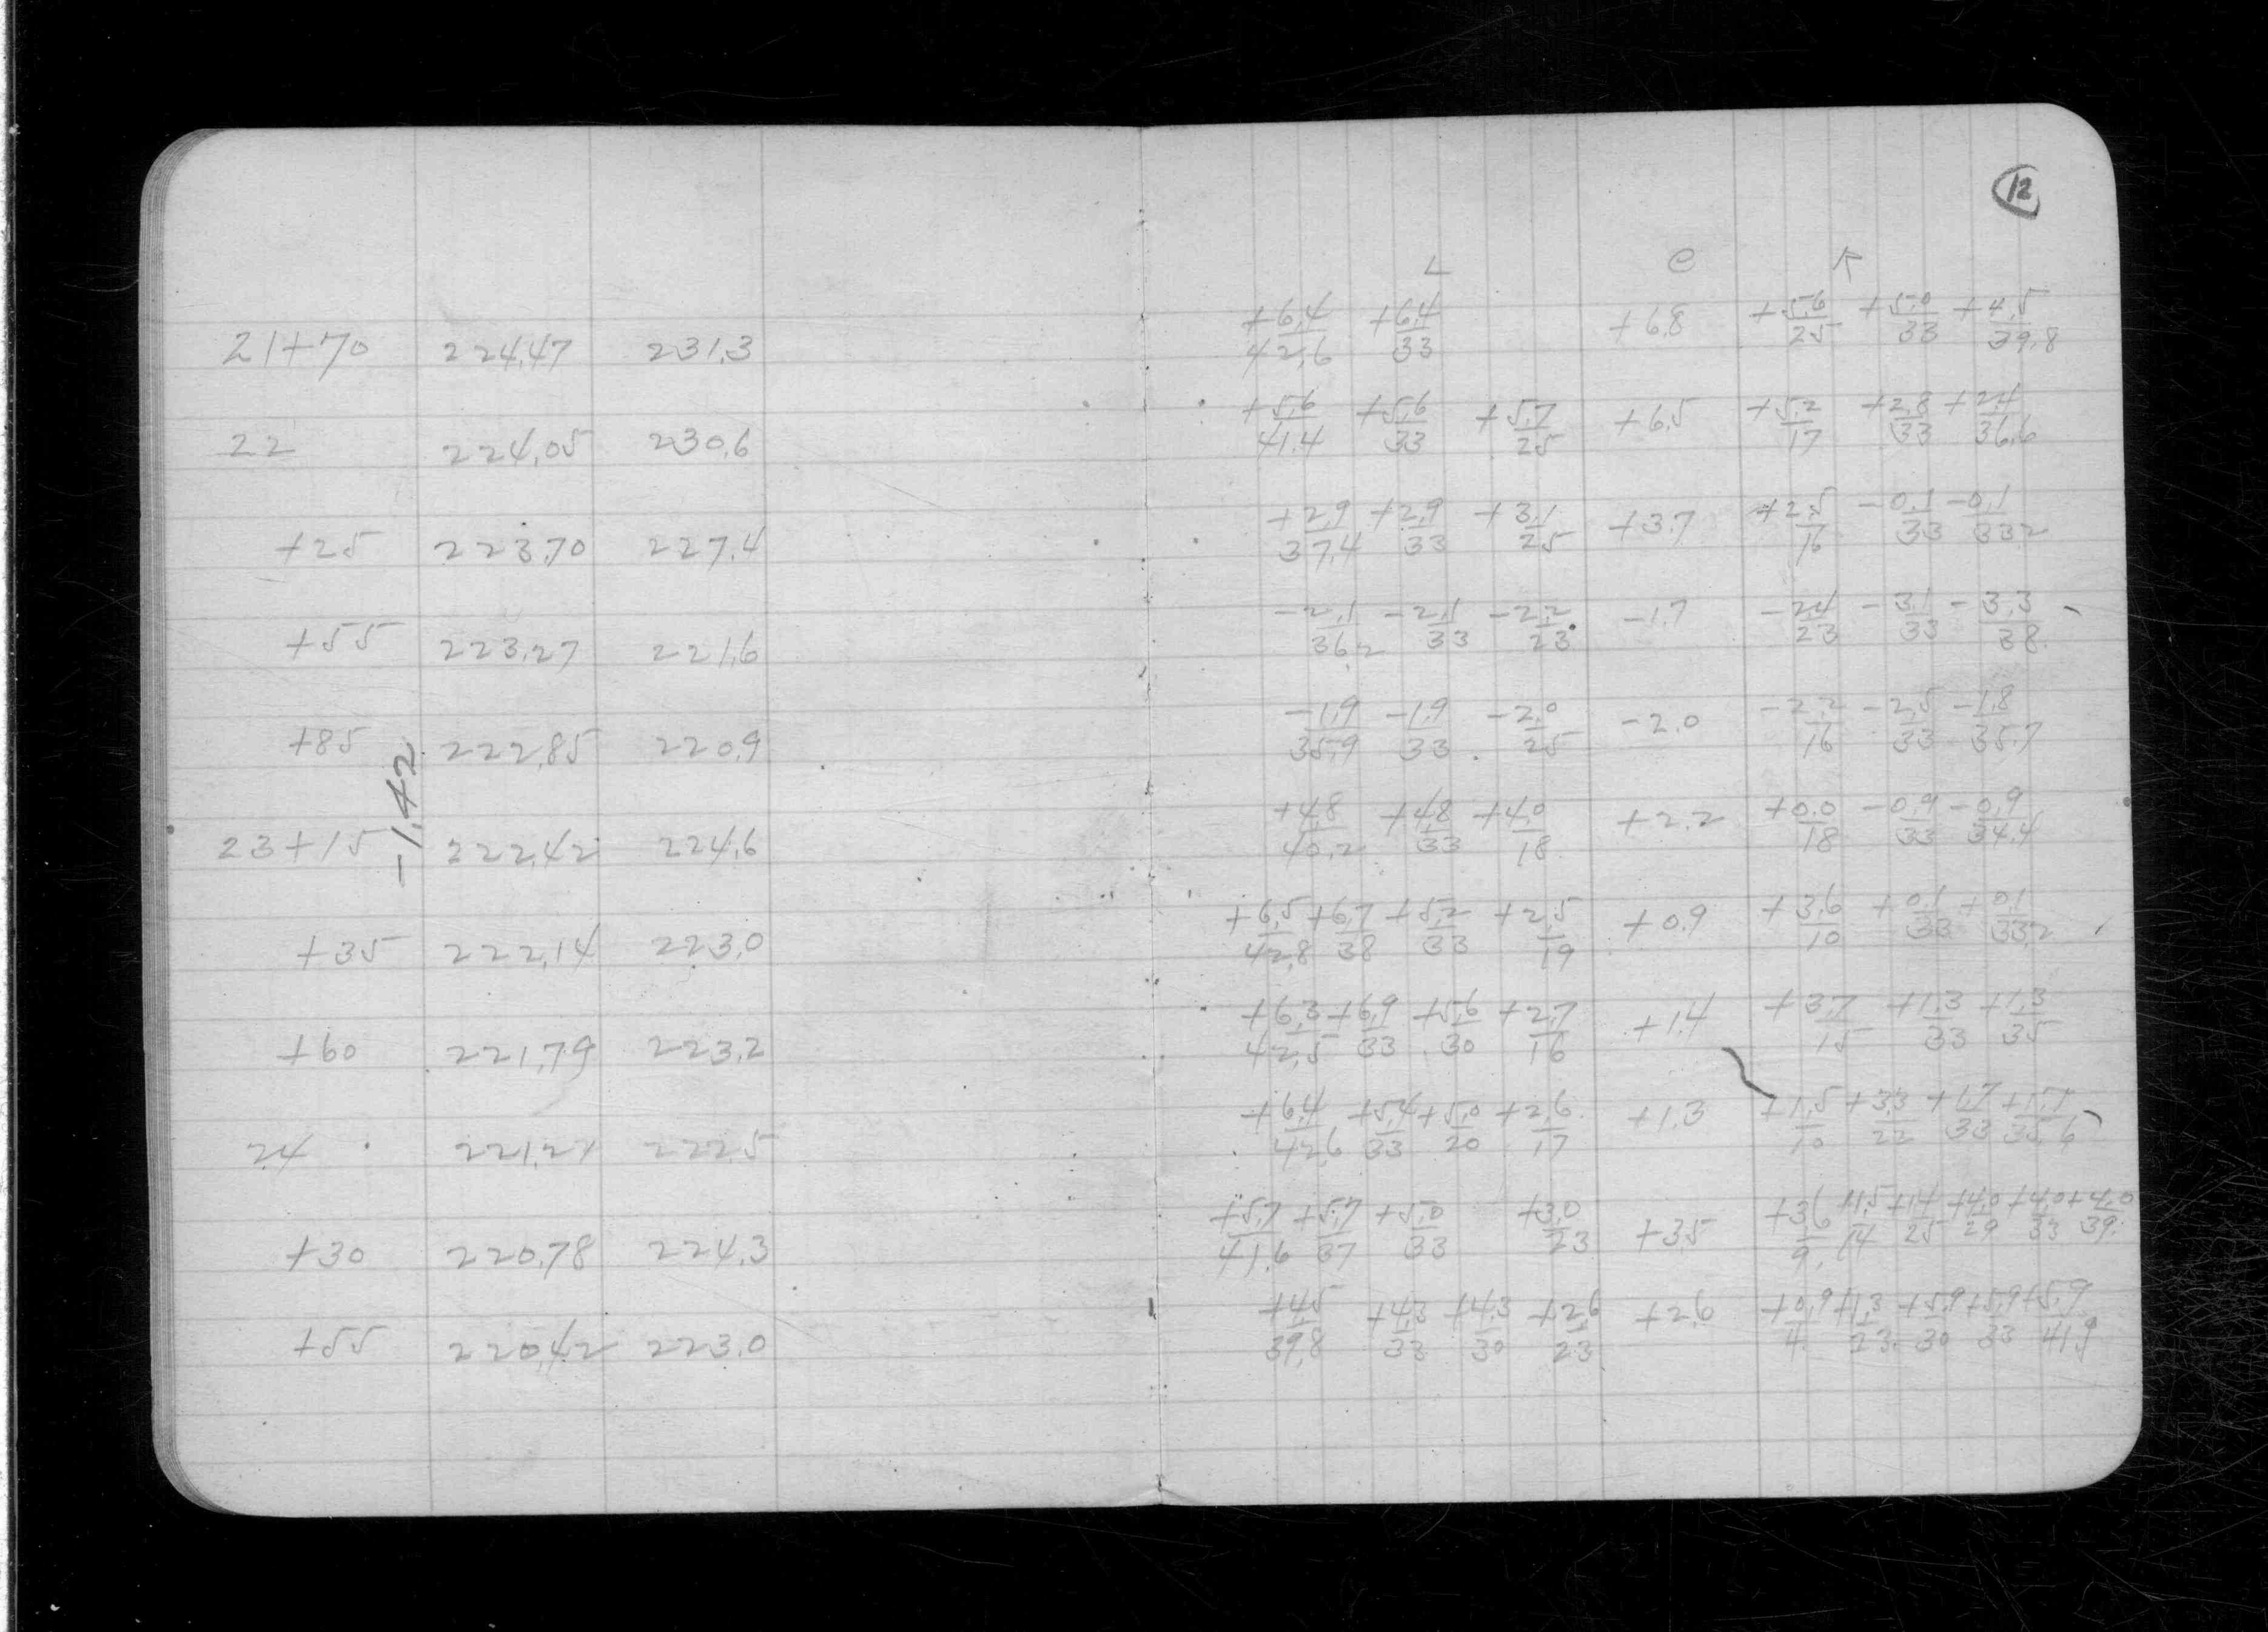 12
L C R
21+70 224.47 231.3 +6.4/42.6 +6.4/33 +6.8 +5.6/25 +5.0/33 +4.5/39.8
22 224.05 230.6 +5.6/41.4 +5.6/33 +5.7/25 +6.5 +5.2/17 +2.8/33 +2.4/36.6
+25 223.70 227.4 +2.9/37.4 +2.9/33 +3.1/25 +3.7 +2.5/16 -0.1/33 -0.1/33.2
+55 223.27 221.6 -2.1/36.2 -2.1/33 -2.2/23 -1.7 -2.4/23 -3.1/33 -3.3/38
+85 222.85 220.9 -1.9/35.9 -1.9/33 -2.0/25 -2.0 -2.2/16 -2.5/33 -1.8/35.7
-1.42
23+15 222.42 224.6 +4.8/40.2 +4.8/33 +4.0/18 +2.2 +0.0/18 -0.9/33 -0.9/34.4
+35 222.14 223.0 +6.5/42.8 +6.7/38 +5.2/33 +2.5/19 +0.9 +3.6/10 +0.1/33 +0.1/33.2
+60 221.79 223.2 +6.3/42.5 +6.9/33 +5.6/30 +2.7/16 +1.4 +3.7/15 +1.3/33 +1.3/35
24 222.5 +6.4/42.6 +5.4/33 +5.0/20 +2.6/17 +1.3 +1.5/10 +3.3/22 +1.7/33 +1.7/35.6
+30 220.78 224.3 +5.7/41.6 +5.7/37 +5.0/33 +3.0/23 +3.5 +3.6/9 +1.5/14 +1.4/25 +4.0/29 +4.0/33 +4.0/39
+55 220.42 223.0 +4.5/39.8 +4.3/33 +4.3/30 +2.6/23 +2.6 +0.9/4 +1.3/23 +5.9/30 +5.9/33 +5.9/41.9